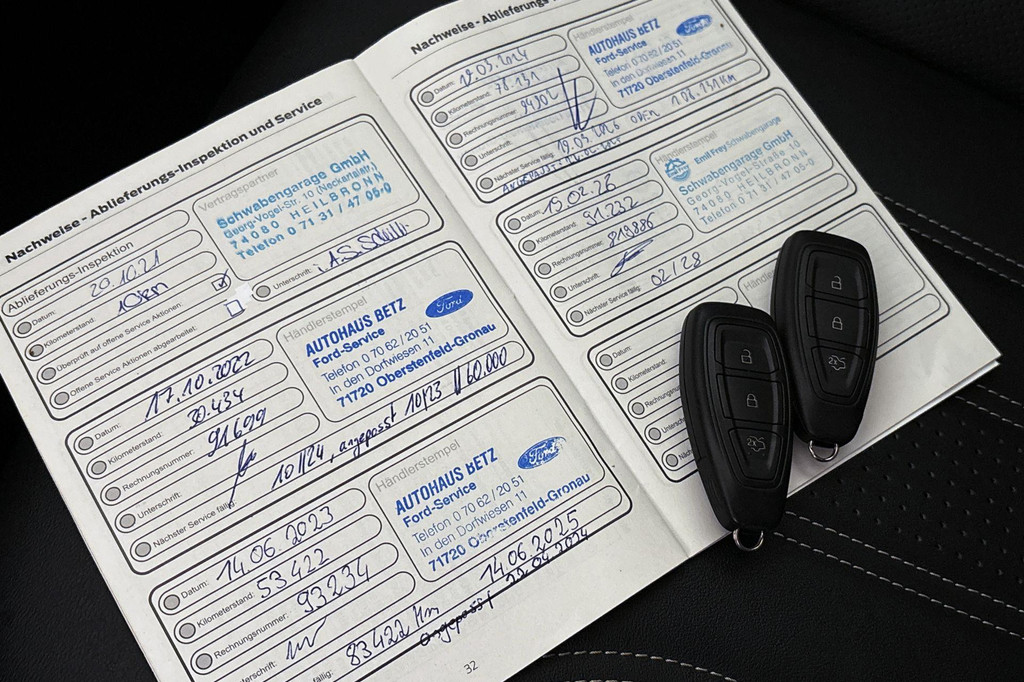 Nachweise - Ablieferungs-Inspektion und Service
Ablieferungs-Inspektion
Datum: 20.10.21
Kilometerstand: 10km
Überprüft auf offene Service Aktionen:
Offene Service Aktionen abgearbeitet:
Vertragspartner
Schwabengarage GmbH
Georg-Vogel-Str. 10 (Neckaraltstr.)
74080 HEILBRONN
Telefon 0 71 31 / 47 05-0
Unterschrift:
Datum: 17.10.2022
Kilometerstand: 30.434
Rechnungsnummer: 91699
Unterschrift:
Nächster Service fällig: 10/24, angepasst 10/23 // 60.000
Händlerstempel
AUTOHAUS BETZ
Ford
Ford-Service
Telefon 0 70 62 / 20 51
In den Dorfwiesen 11
71720 Oberstenfeld-Gronau
Datum: 14.06.2023
Kilometerstand: 53422
Rechnungsnummer: 93234
Unterschrift:
fällig: 83422 km
14.06.2025
angepasst 22.04.2024
Händlerstempel
AUTOHAUS BETZ
Ford
Ford-Service
Telefon 0 70 62 / 20 51
In den Dorfwiesen 11
71720 Oberstenfeld-Gronau
32
Nachweise - Ablieferungs-
Datum: 19.03.2024
Kilometerstand: 78.131
Rechnungsnummer: 94902
Unterschrift:
Nächster Service fällig: 19.03.2026 ODER 108.131 KM
Händlerstempel
AUTOHAUS BETZ
Ford
Ford-Service
Telefon 0 70 62 / 20 51
In den Dorfwiesen 11
71720 Oberstenfeld-Gronau
Datum: 19.02.26
Kilometerstand: 91.232
Rechnungsnummer: 819886
Unterschrift:
Nächster Service fällig: 02/28
Händlerstempel
Emil Frey Schwabengarage
Schwabengarage GmbH
Georg-Vogel-Straße 10
74080 HEILBRONN
Telefon 0 71 31 / 47 05-0
Datum:
Kilometerstand:
Rechnungsnummer:
Unterschrift:
2x
2x